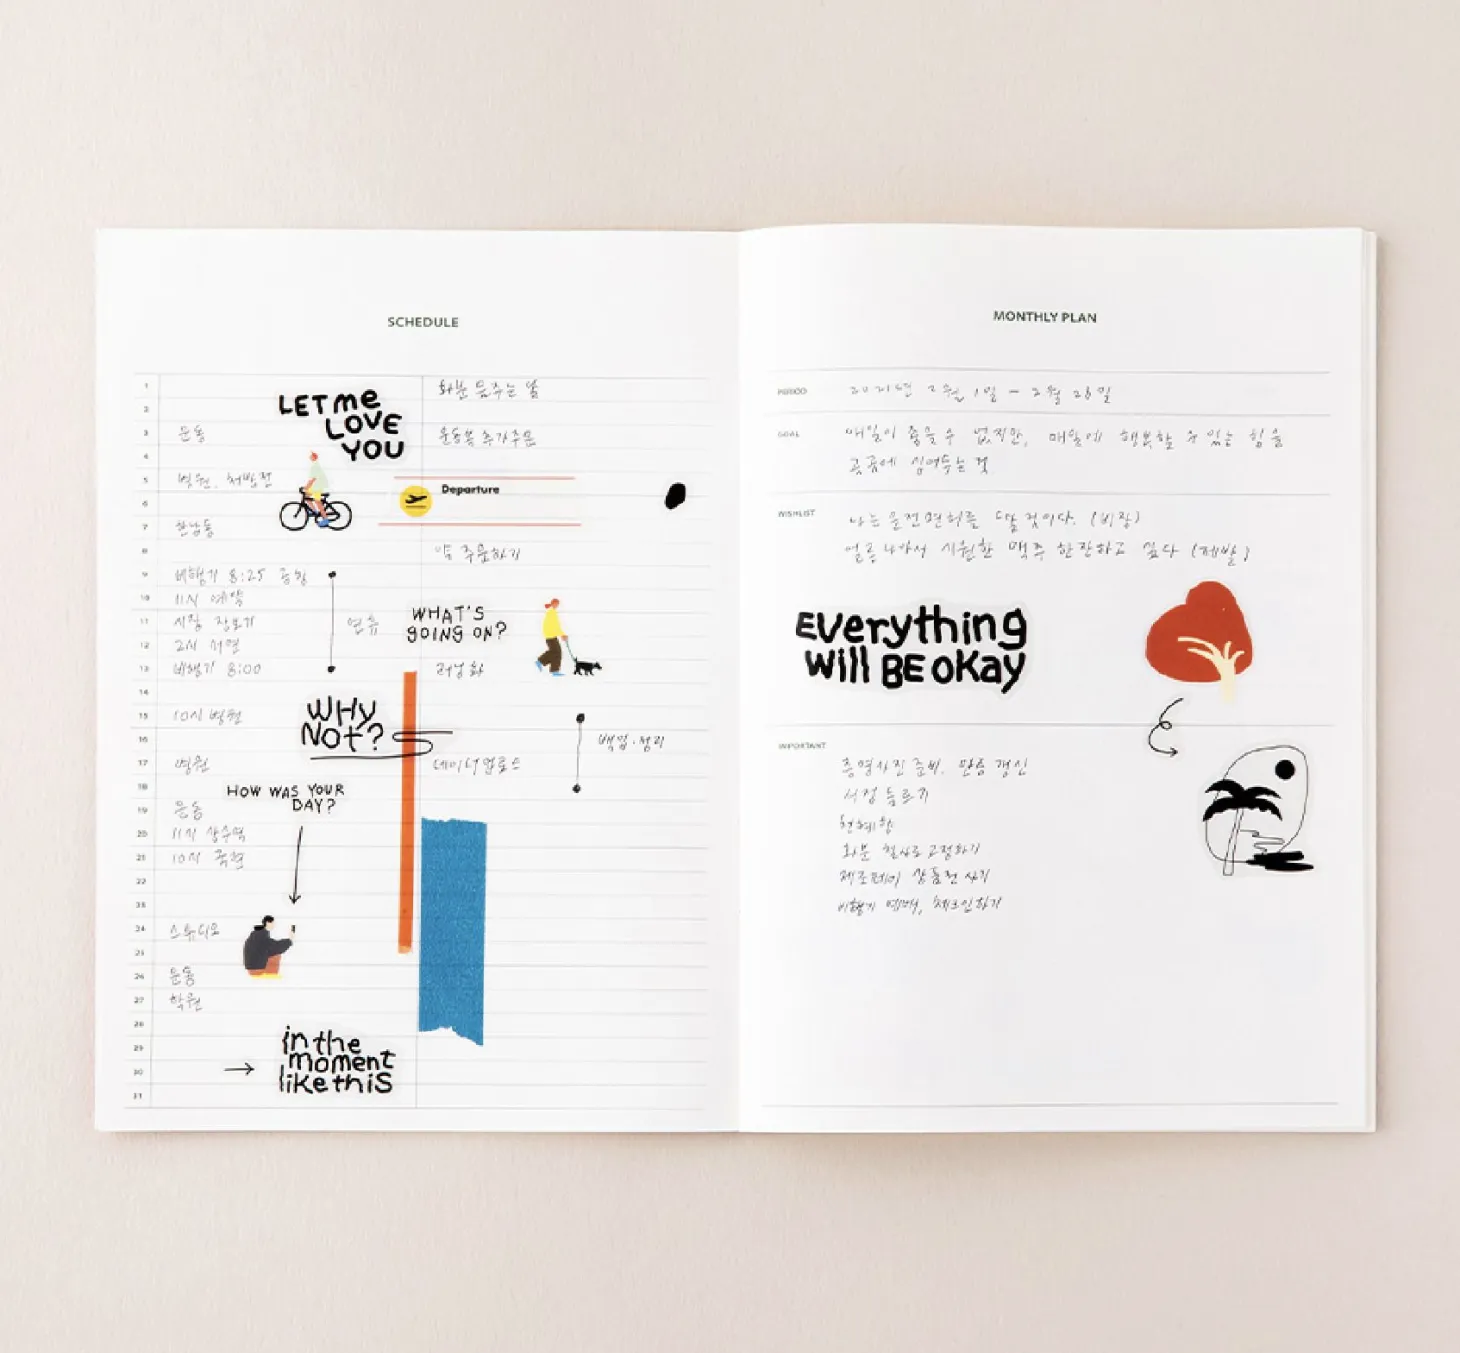 SCHEDULE
1
화분 물주는 날
2
LET me
LOVE
YOU
3 운동
운동복 추가주문
4
5 병원, 처방전
Departure
6
7 한남동
8
약 주문하기
9 비행기 8:25 공항
10 11시 예약
연휴
WHAT'S
GOING ON?
11 시장 장보기
12 2시 서면
13 비행기 8:00
러닝화
14
WHY
NOT?
15 10시 병원
16
백업·정리
17 병원
데이터
18
HOW WAS YOUR
DAY?
19 운동
20 11시 상수역
21 10시
22
23
24 스튜디오
25
26 운동
27 학원
28
29
in the
moment
like this
30
31
MONTHLY PLAN
PERIOD 2021년 2월 1일 - 2월 28일
GOAL 매일이 좋을 수 없지만, 매일에 행복할 수 있는 힘을
곳곳에 심어두는 것
WISHLIST 나는 운전면허를 딸 것이다. (비장)
얼른 나아서 시원한 맥주 한잔하고 싶다 (제발)
Everything
will BE oKay
IMPORTANT
증명사진 준비, 만료 갱신
서점 들르기
화분 철사로 고정하기
상품권 사기
비행기 예매, 체크인하기